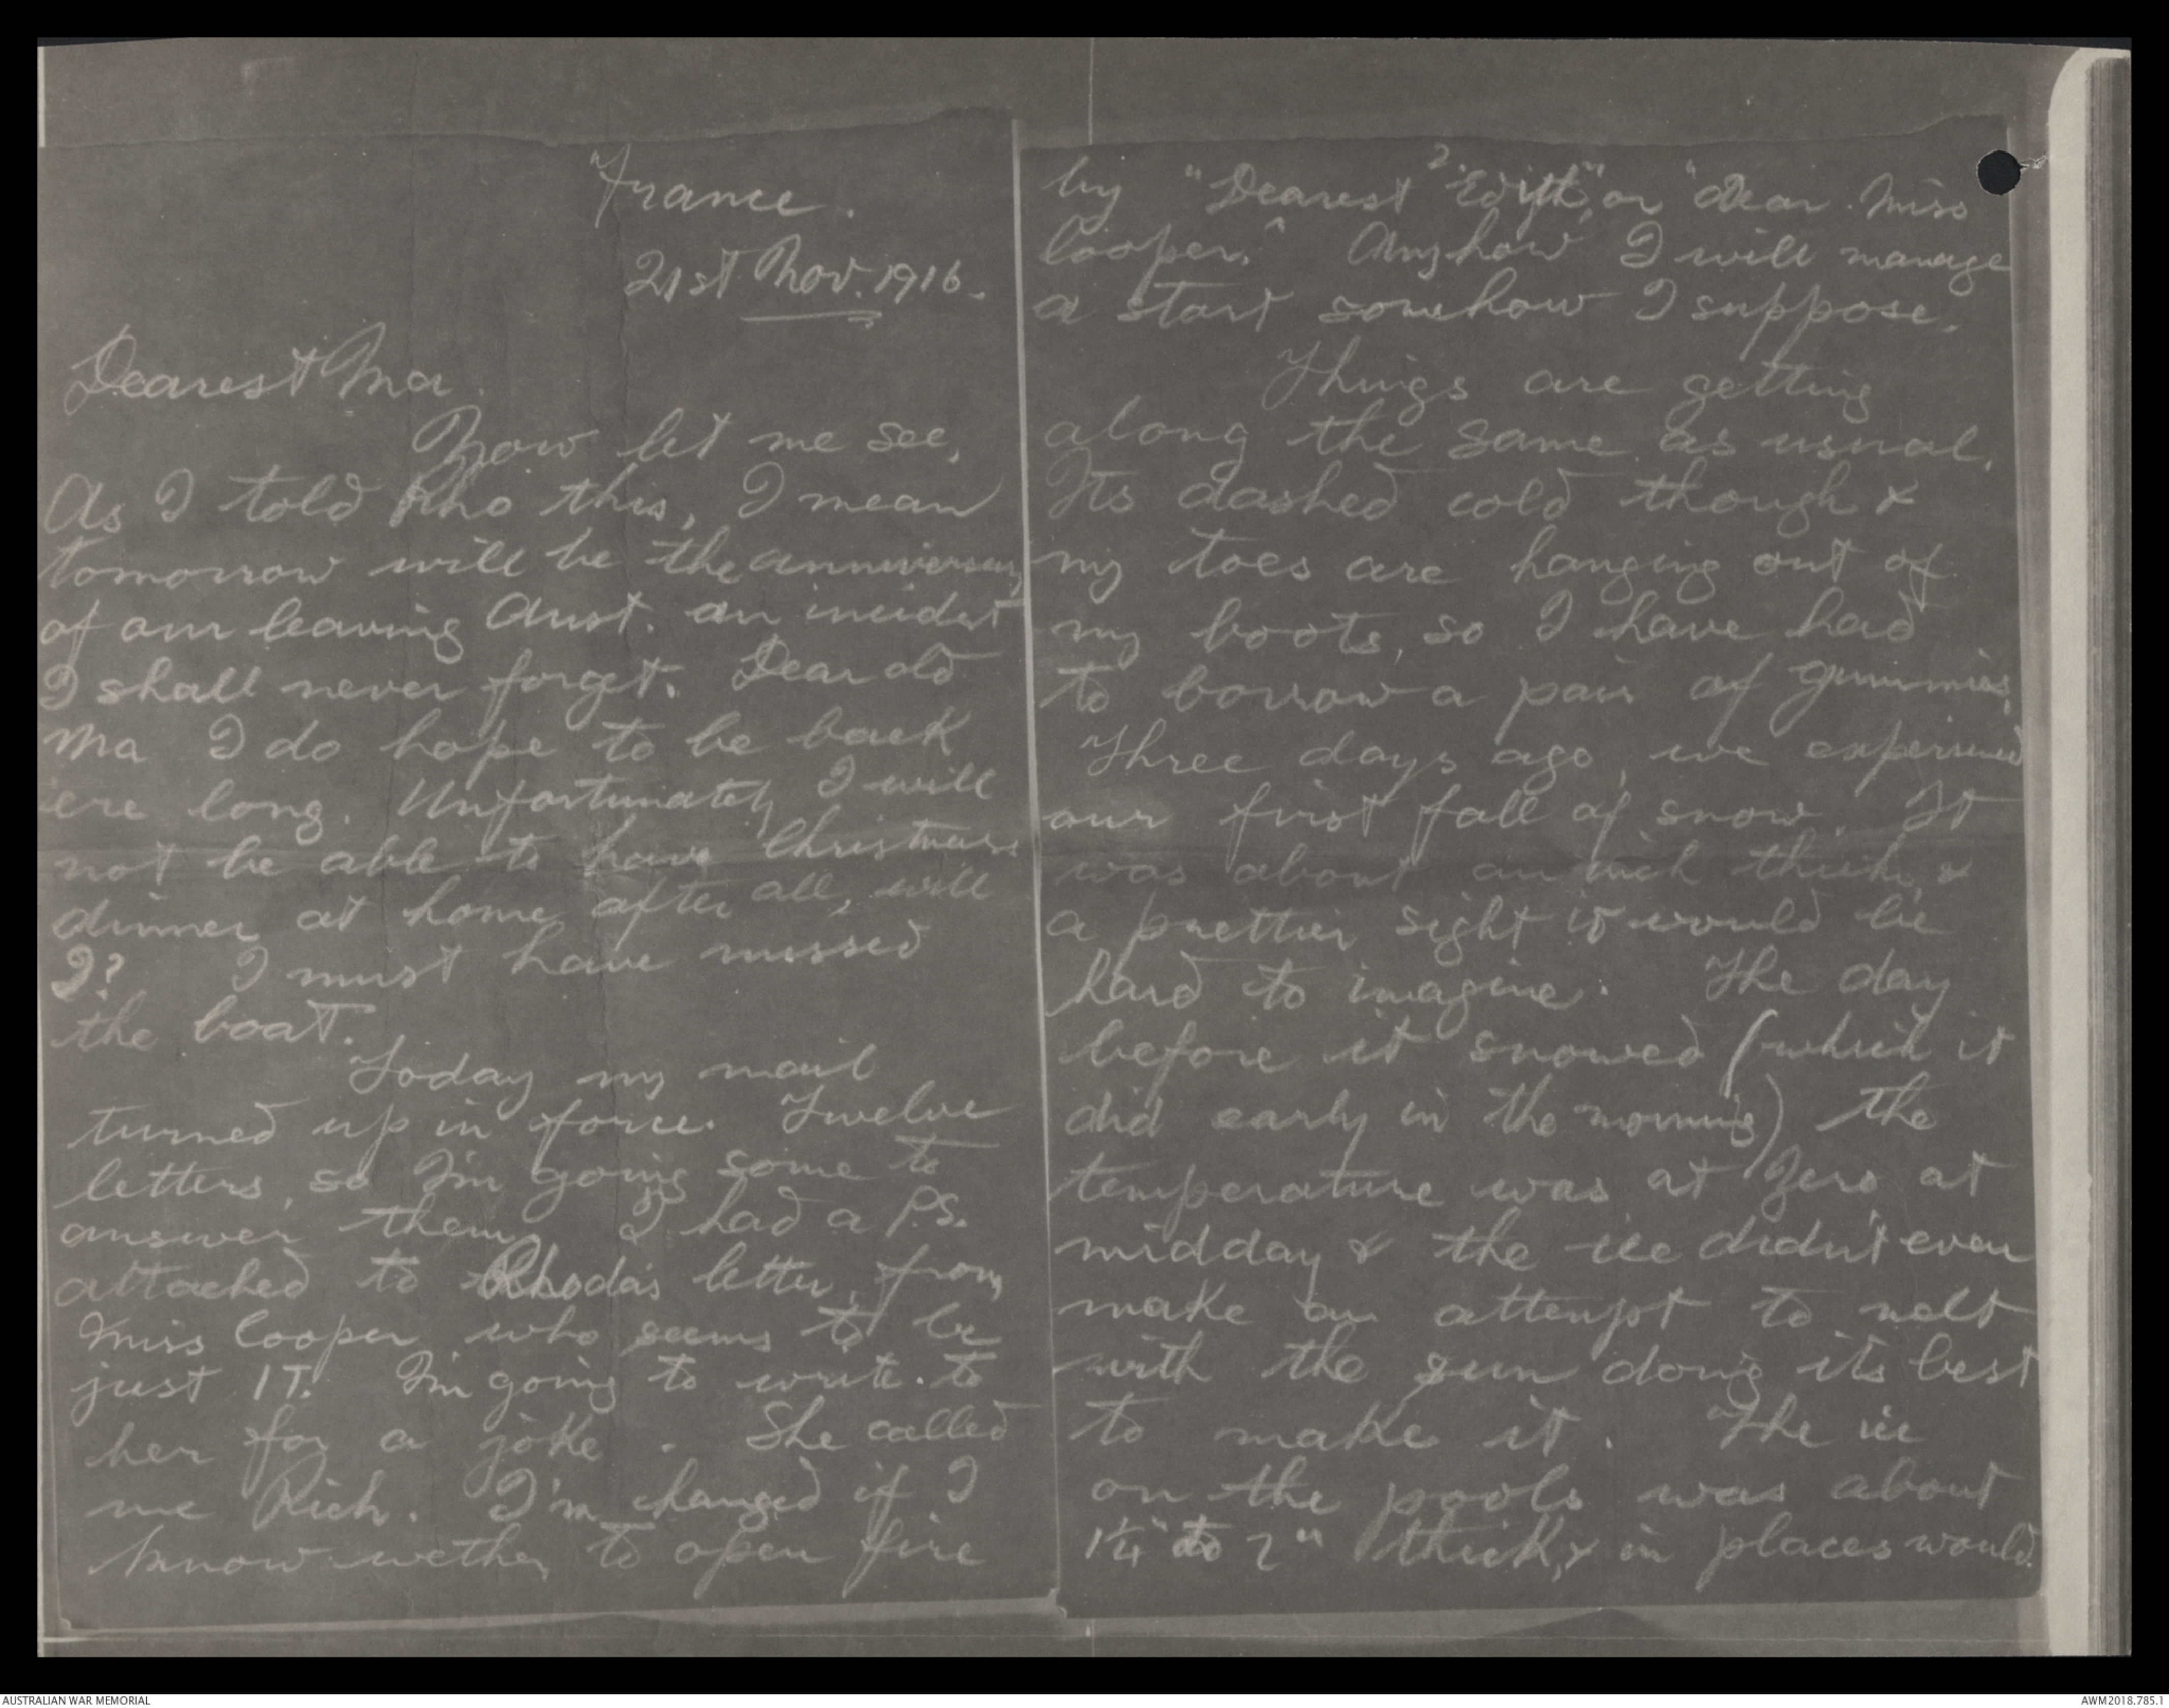 France.
21st Nov. 1916.
Dearest Ma.
Now let me see,
As I told Rho this, I mean
tomorrow will be the anniversary
of our leaving Aust. an incident
I shall never forget. Dear old
Ma I do hope to be back
ere long. Unfortunately I will
not be able to have Christmas
dinner at home after all, will
I? I must have missed
the boat.
Today my mail
turned up in force. Twelve
letters, so I'm going some to
answer them. I had a P.S.
attached to Rhoda's letter, from
Miss Cooper, who seems to be
just IT. I'm going to write to
her for a joke. She called
me Rich. I'm hanged if I
know wether to open fire
2
by "Dearest Edyth", or "dear Miss
Cooper." Anyhow I will manage
a start somehow I suppose.
Things are getting
along the same as usual.
Its dashed cold though &
my toes are hanging out of
my boots, so I have had
to borrow a pair of gummies.
Three days ago, we experienced
our first fall of snow. It
was about an inch thick, &
a prettier sight it would be
hard to imagine. The day
before it snowed (which it
did early in the morning) the
temperature was at Zero at
midday & the ice didn't even
make an attempt to melt
with the sun doing its best
to make it. The ice
on the pools was about
1¼" to 2" thick, & in places would
AUSTRALIAN WAR MEMORIAL
AWM2018.785.1